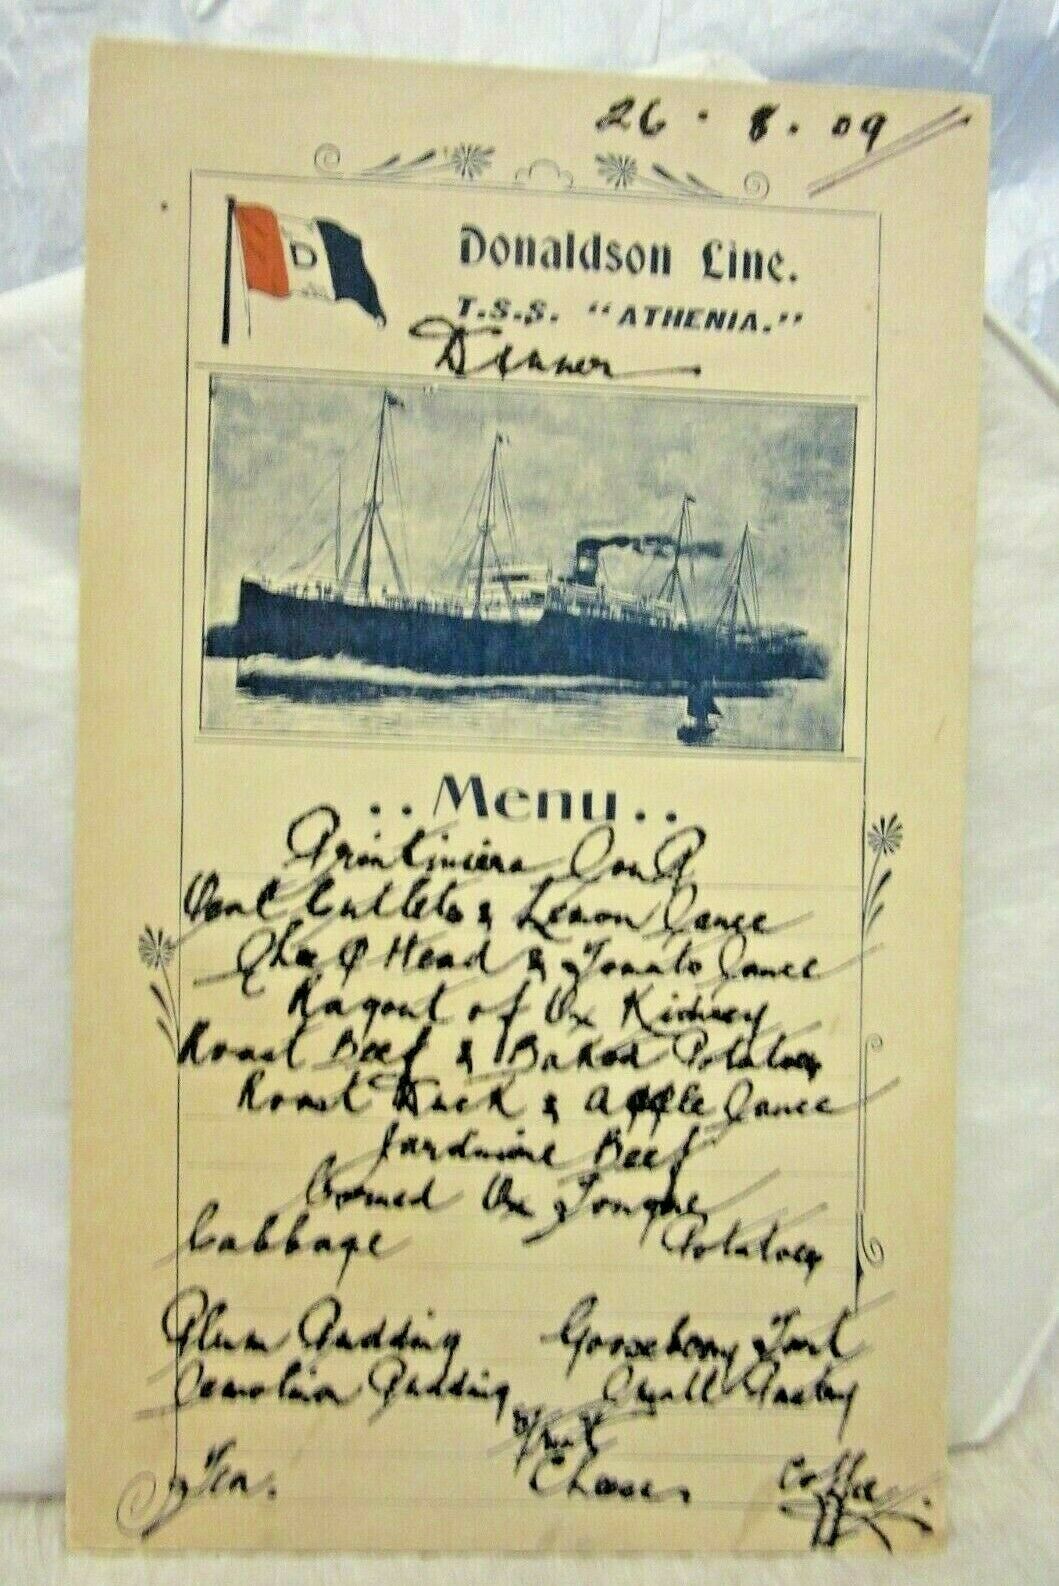 26 . 8 . 09
D
Donaldson Line.
T.S.S. "ATHENIA."
Dinner
..Menu..
Printiniere Soup
Veal Cutlets & Lemon Sauce
Sheep Head & Tomato Sauce
Ragout of Ox Kidney
Roast Beef & Baked Potatoes
Roast Duck & Apple Sauce
Jardiniere Beef
Corned Ox Tongue
Cabbage Potatoes
Plum Pudding Gooseberry Tart
Semolina Pudding Small Pastry
Fruit
Tea. Cheese. Coffee.